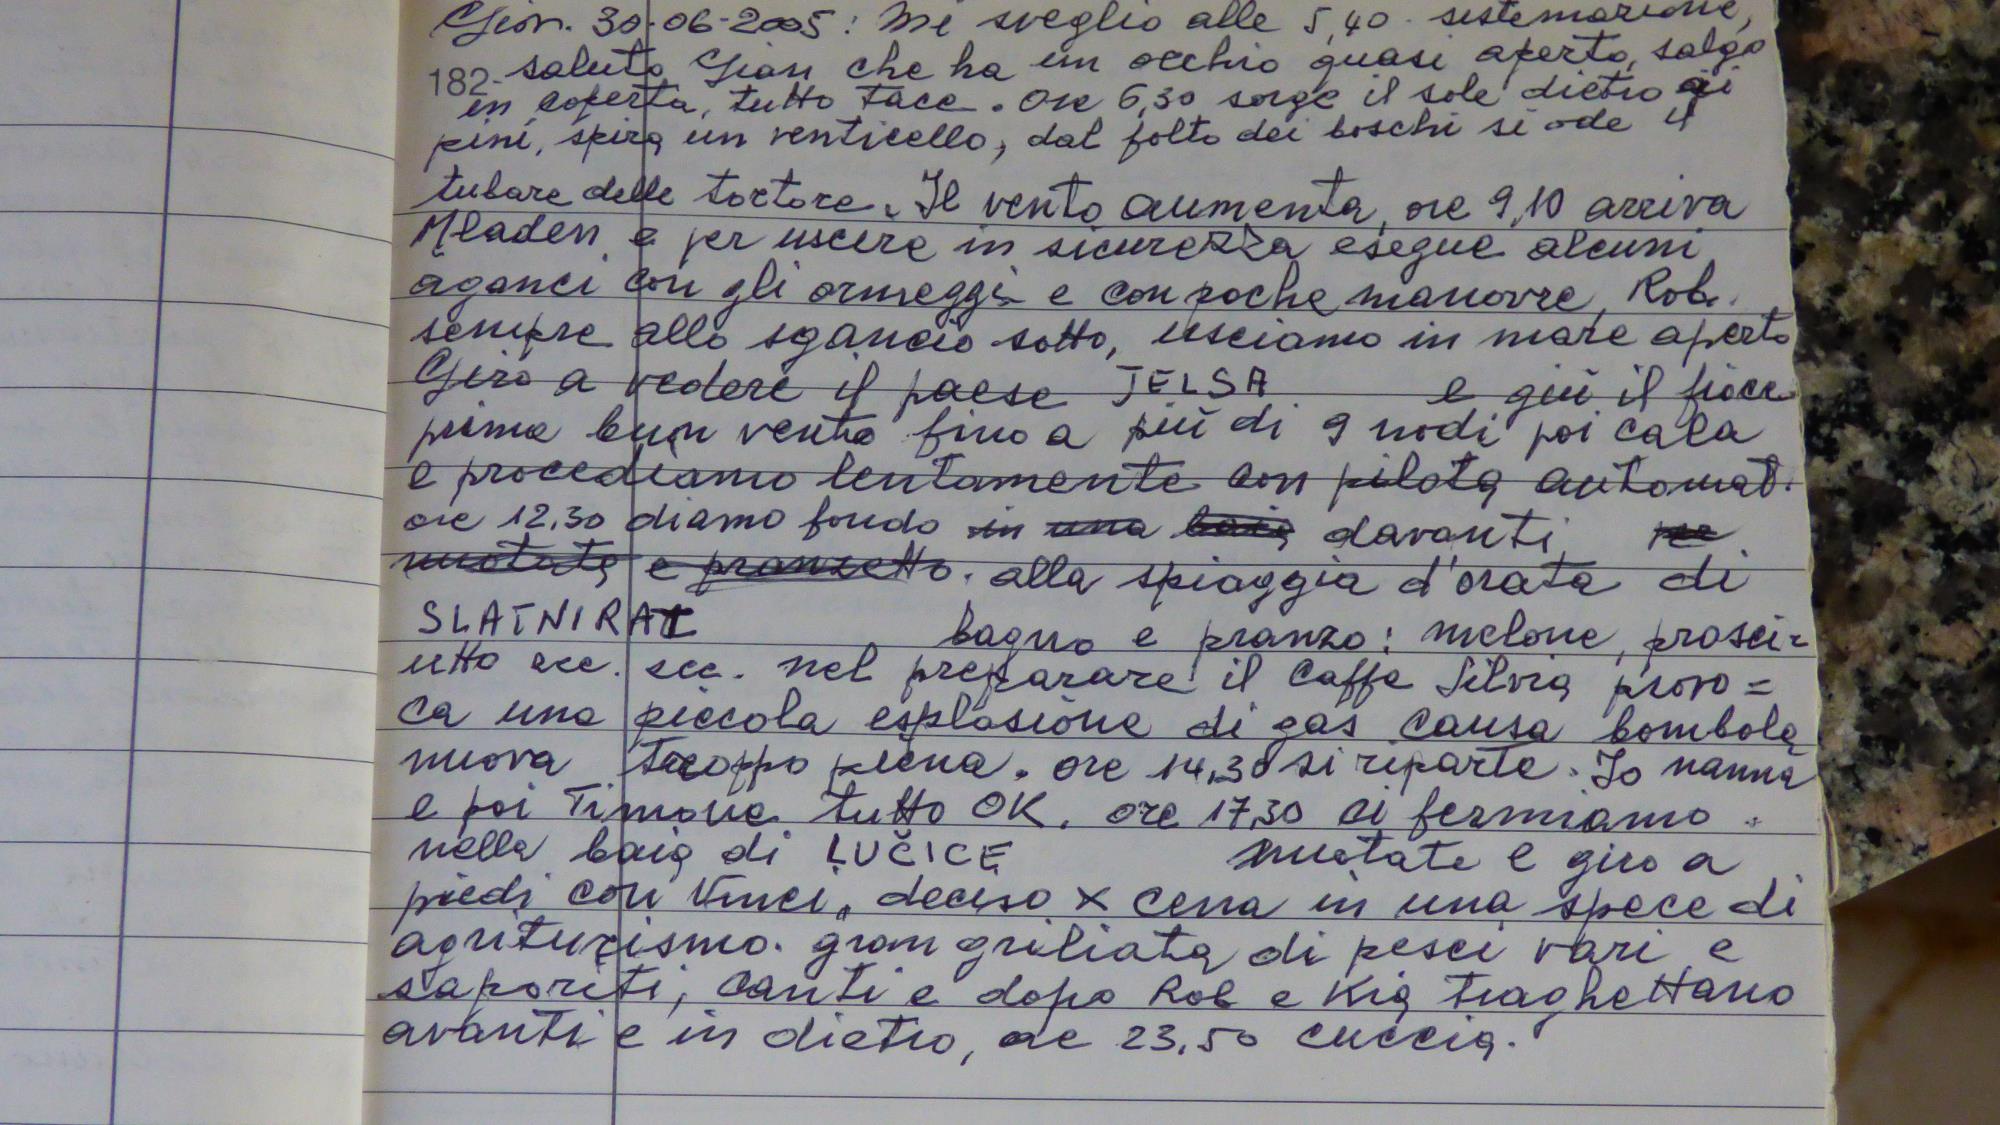 Giov. 30-06-2005: Mi sveglio alle 5,40. sistemazione,
182- saluto Gian che ha un occhio quasi aperto, salgo
in coperta, tutto tace. Ore 6,30 sorge il sole dietro ai
pini, spira un venticello, dal folto dei boschi si ode il
tubare delle tortore. Il vento aumenta, ore 9,10 arriva
Mladen e per uscire in sicurezza esegue alcuni
aganci con gli ormeggi e con poche manovre, Rob.
sempre allo sgancio sotto, usciamo in mare aperto
Giro a vedere il paese JELSA e giù il fiocc
prima buon vento fino a più di 9 nodi poi cala
e procediamo lentamente con pilota automat.
ore 12.30 diamo fondo in una baia davanti
nuotata e pranzetto. alla spiaggia d'orata di
SLATNIRAT bagno e pranzo: melone, prosci=
utto ecc. ecc. nel preparare il caffe Silvia provo=
ca una piccola esplosione di gas causa bombola
nuova troppo piena. ore 14,30 si riparte. Io nanna
e poi Timone tutto OK. ore 17,30 ci fermiamo.
nella baia di LUČICE nuotate e giro a
piedi con Vinci, deciso x cena in una spece di
agriturismo. gran griliata di pesci vari e
saporiti, canti e dopo Rob e Kia traghettano
avanti e in dietro, ore 23,50 cuccia.